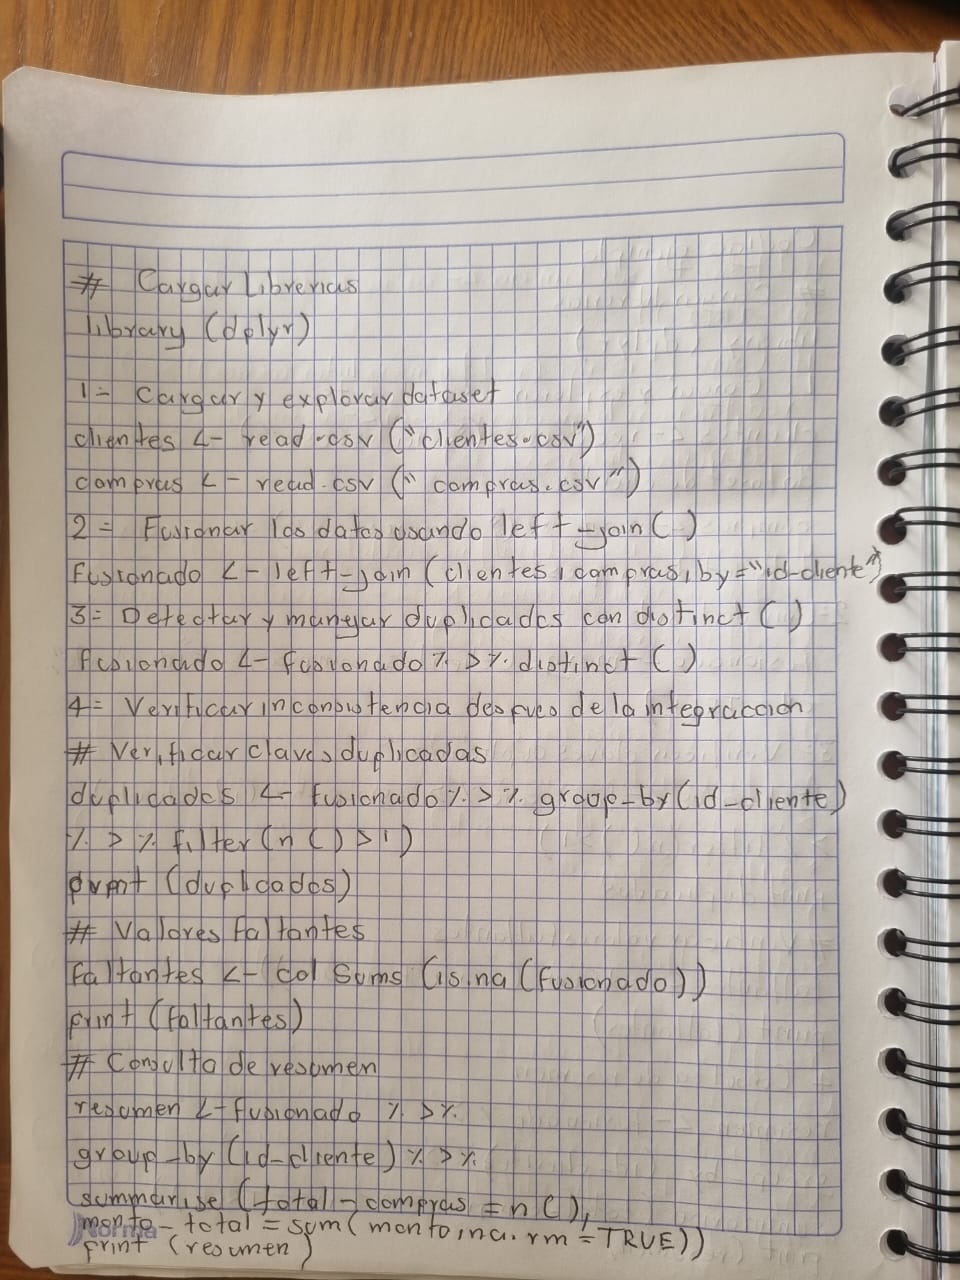 # Cargar Librerias
library (dplyr)
1= Cargar y explorar dataset
clientes <- read.csv ("clientes.csv")
compras <- read.csv ("compras.csv")
2= Fusionar los datos usando left-join ( )
Fusionado <- left-join (clientes, compras, by="id-cliente")
3= Detectar y manejar duplicados con distinct ( )
fusionado <- fusionado %>% distinct ( )
4= Verificar inconsistencia despues de la integraccion
# Verificar claves duplicadas
duplicados <- fusionado %>% group-by (id-cliente)
%>% filter (n () > 1)
print (duplicados)
# Valores Faltantes
Faltantes <- col Sums (is.na (fusionado))
print (faltantes)
# Consulta de resumen
resumen <- fusionado %>%
group-by (id-cliente) %>%
summarise (total-compras = n (),
monto-total = sum (monto, na.rm = TRUE))
print (resumen)
Norma